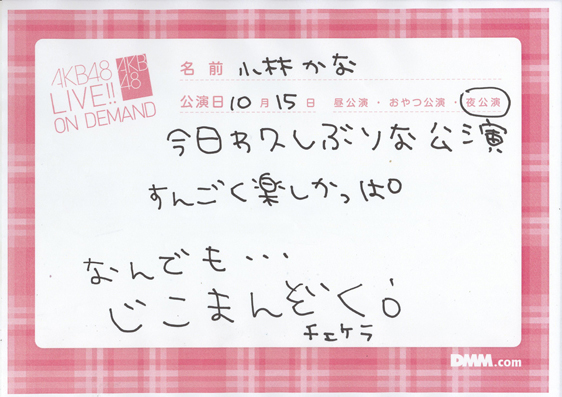 AKB48
LIVE!!
ON DEMAND
AKB
48
名前 小林かな
公演日 10月15日 昼公演・おやつ公演・夜公演
今日わ久しぶりな公演
すんごく楽しかっぱ。
なんでも・・・
じこまんぞく。
チェケラ
DMM.com